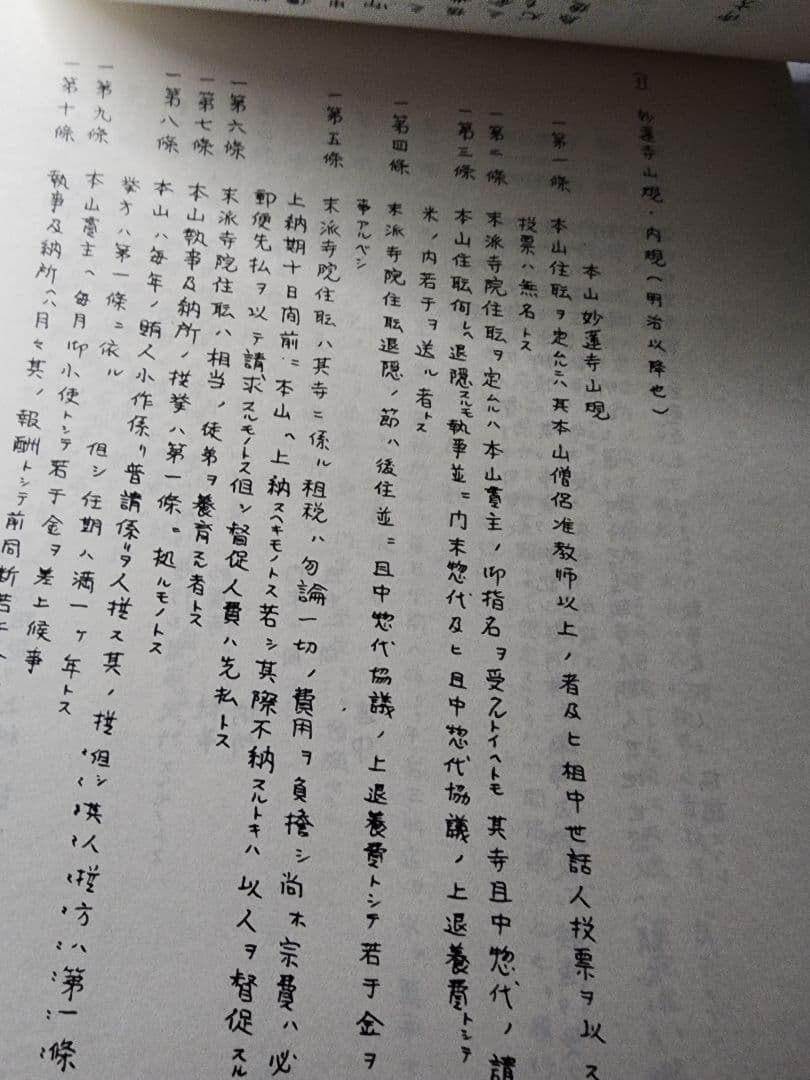 妙蓮寺山規・内規(明治以降也)
本山妙蓮寺山規
一第一條 本山住職ヲ定ムルニハ其本山僧侶准教師以上ノ者及ヒ担中世話人投票ヲ以ス
投票ハ無名トス
一第二條 末派寺院住職ヲ定ムルハ本山貫主ノ御指名ヲ受クルトイヘトモ其寺旦中惣代ノ請
一第三條 本山住職何レヘ退隠スルモ執事並ニ門末惣代及ヒ旦中惣代協議ノ上退養費トシテ
米ノ内若干ヲ送ル者トス
一第四條 末派寺院住職退隠ノ節ハ後住並ニ旦中惣代協議ノ上退養費トシテ若干金ヲ
事アルベシ
一第五條 末派寺院住職ハ其寺ニ係ル租税ハ勿論一切ノ費用ヲ負擔シ尚ホ宗費ハ必
上納期十日間前ニ本山ヘ上納スヘキモノトス若シ其際不納スルトキハ以人ヲ督促スル
郵便先払ヲ以テ請求スルモノトス但シ督促人費ハ先払トス
一第六條 末派寺院住職ハ相当ノ徒弟ヲ養育スル者トス
一第七條 本山執事及納所ノ撰挙ハ第一條ニ拠ルモノトス
一第八條 本山ハ毎年ノ賄人小作係リ普請係リヲ人撰ス其ノ撰但シ其人撰方ハ第一條
挙方ハ第一條ニ依ル 但シ任期ハ満一ヶ年トス
一第九條 本山貫主ヘ毎月御小使トシテ若干金ヲ差上候事
一第十條 執事及納所ヘハ月々其ノ報酬トシテ前同断若干